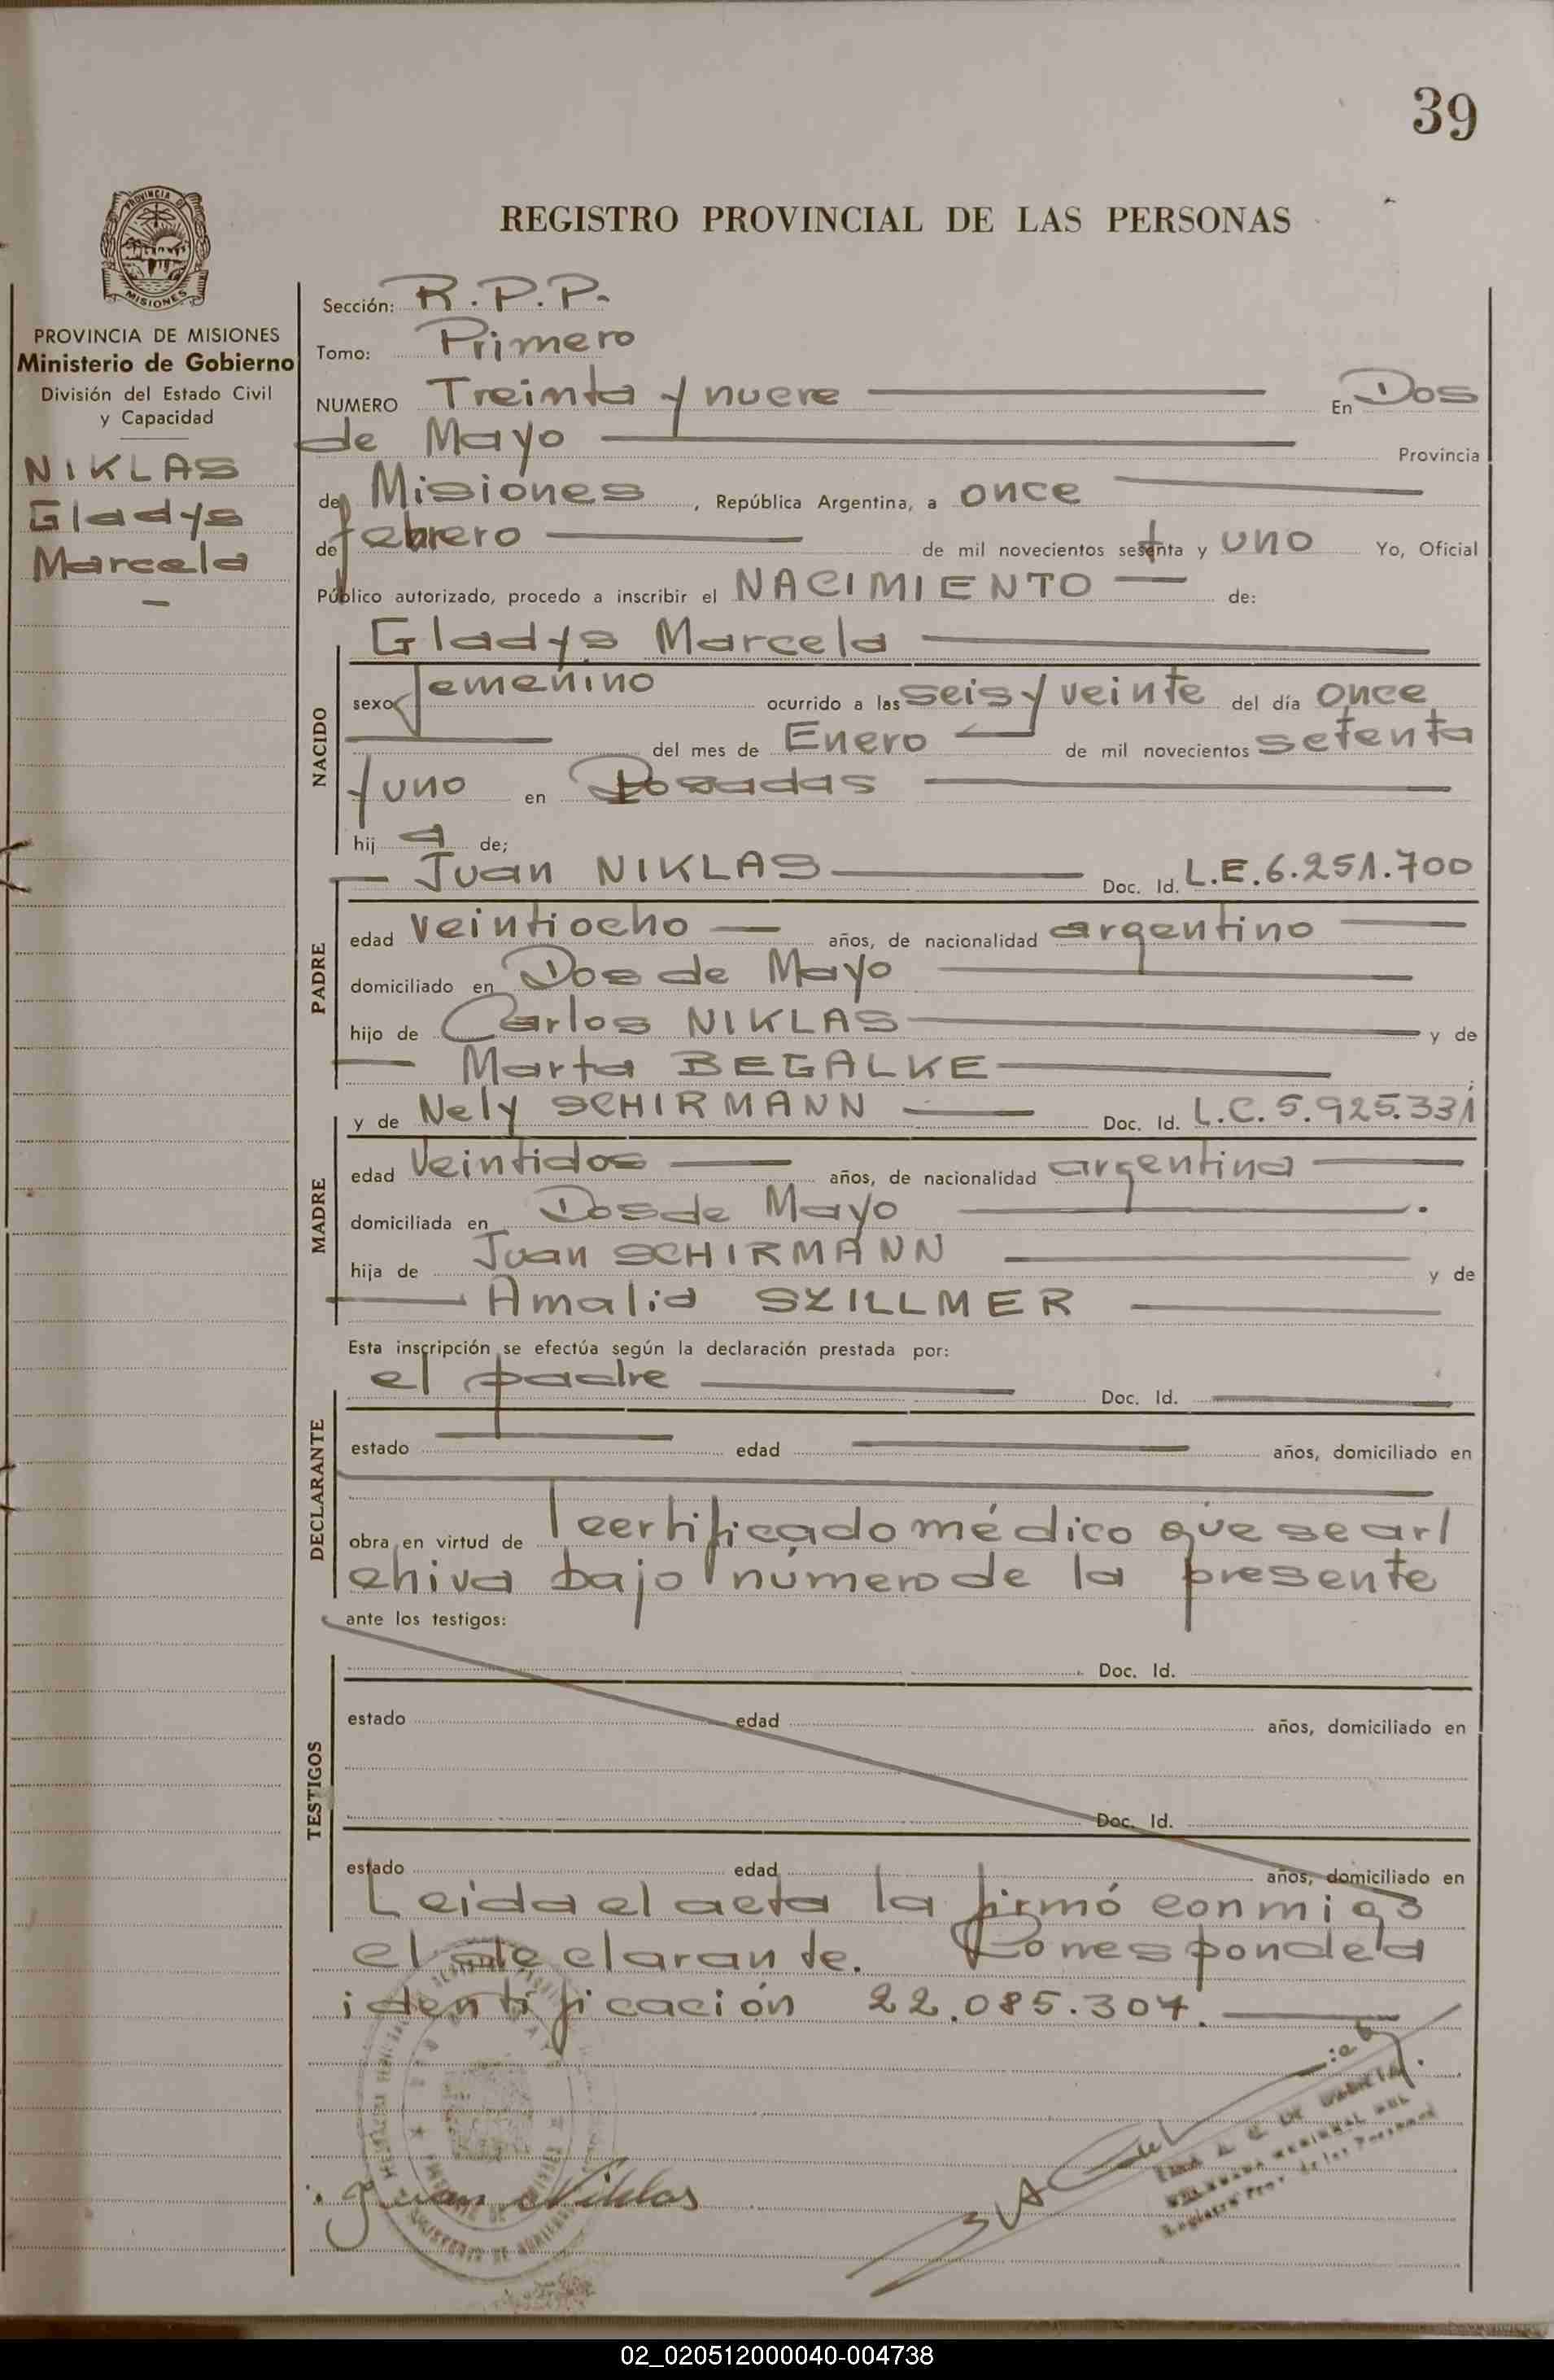 39
REGISTRO PROVINCIAL DE LAS PERSONAS
PROVINCIA DE
MISIONES
PROVINCIA DE MISIONES
Ministerio de Gobierno
División del Estado Civil
y Capacidad
NIKLAS
Gladys
Marcela
Sección: R.P.P.
Tomo: Primero
NUMERO Treinta y nueve En Dos
de Mayo Provincia
de Misiones, República Argentina, a once
de febrero de mil novecientos setenta y uno Yo, Oficial
Público autorizado, procedo a inscribir el NACIMIENTO de:
Gladys Marcela
NACIDO
sexo femenino ocurrido a las seis y veinte del día once
del mes de Enero de mil novecientos setenta
y uno en Posadas
hij a de;
Juan NIKLAS Doc. Id. L.E.6.251.700
PADRE
edad veintiocho años, de nacionalidad argentino
domiciliado en Dos de Mayo
hijo de Carlos NIKLAS y de
Marta BEGALKE
y de Nely SCHIRMANN Doc. Id. L.C.5.925.331
MADRE
edad Veintidos años, de nacionalidad argentina
domiciliada en Dos de Mayo
hija de Juan SCHIRMANN y de
Amalia SZILLMER
Esta inscripción se efectúa según la declaración prestada por:
el padre Doc. Id.
DECLARANTE
estado edad años, domiciliado en
obra en virtud de certificado médico que se ar
chiva bajo número de la presente
ante los testigos:
Doc. Id.
TESTIGOS
estado edad años, domiciliado en
Doc. Id.
estado edad años, domiciliado en
Leida el acta la firmó conmigo
el declarante. Corresponde a
identificación 22.085.307.
Juan Niklas
02_020512000040-004738